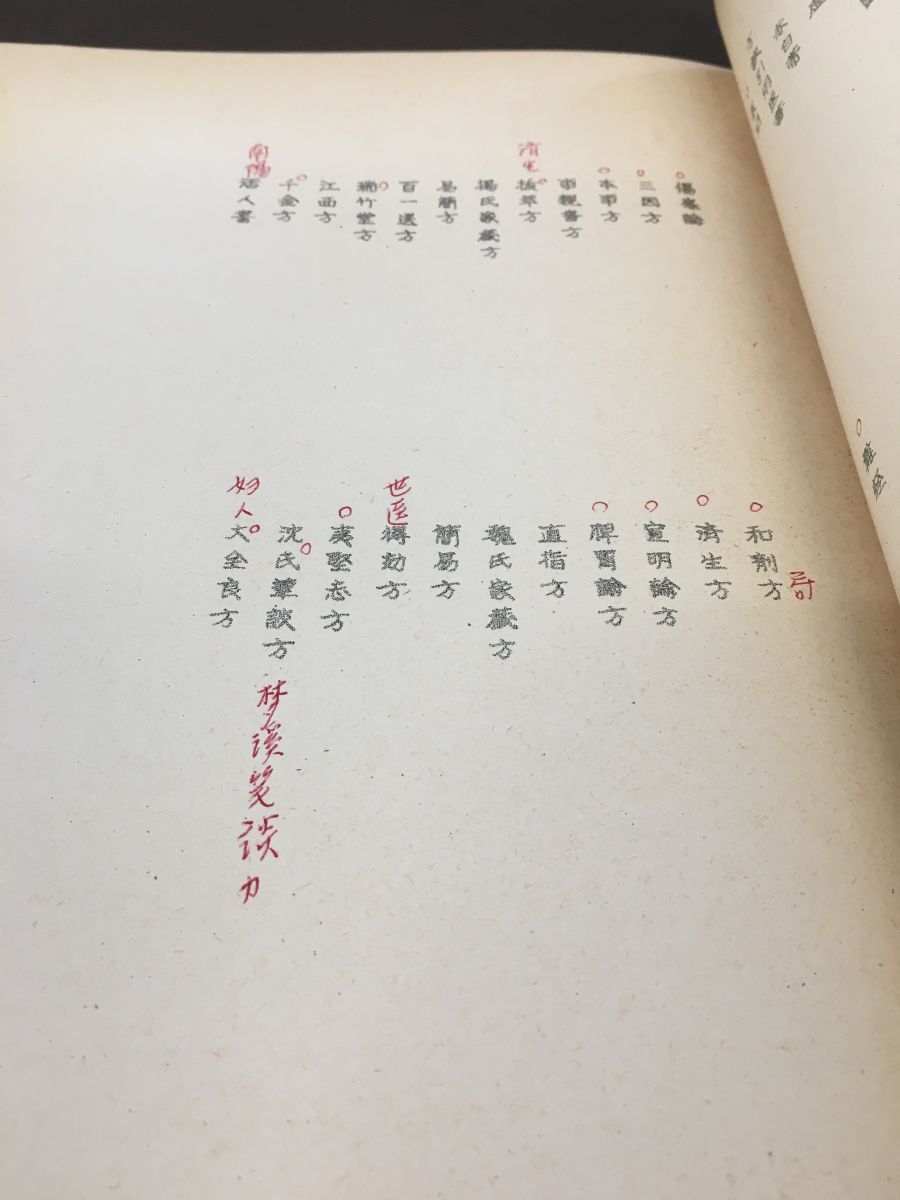 難経
傷寒論
三因方
本事方
事親書方
済生
抜萃方
楊氏家蔵方
易簡方
百一選方
瑞竹堂方
江西方
千金方
南陽
活人書
和剤方
済生方
宣明論方
脾胃論方
直指方
魏氏家蔵方
簡易方
世医
得効方
夷堅志方
沈氏筆談方
梦溪笺談
妇人
大全良方